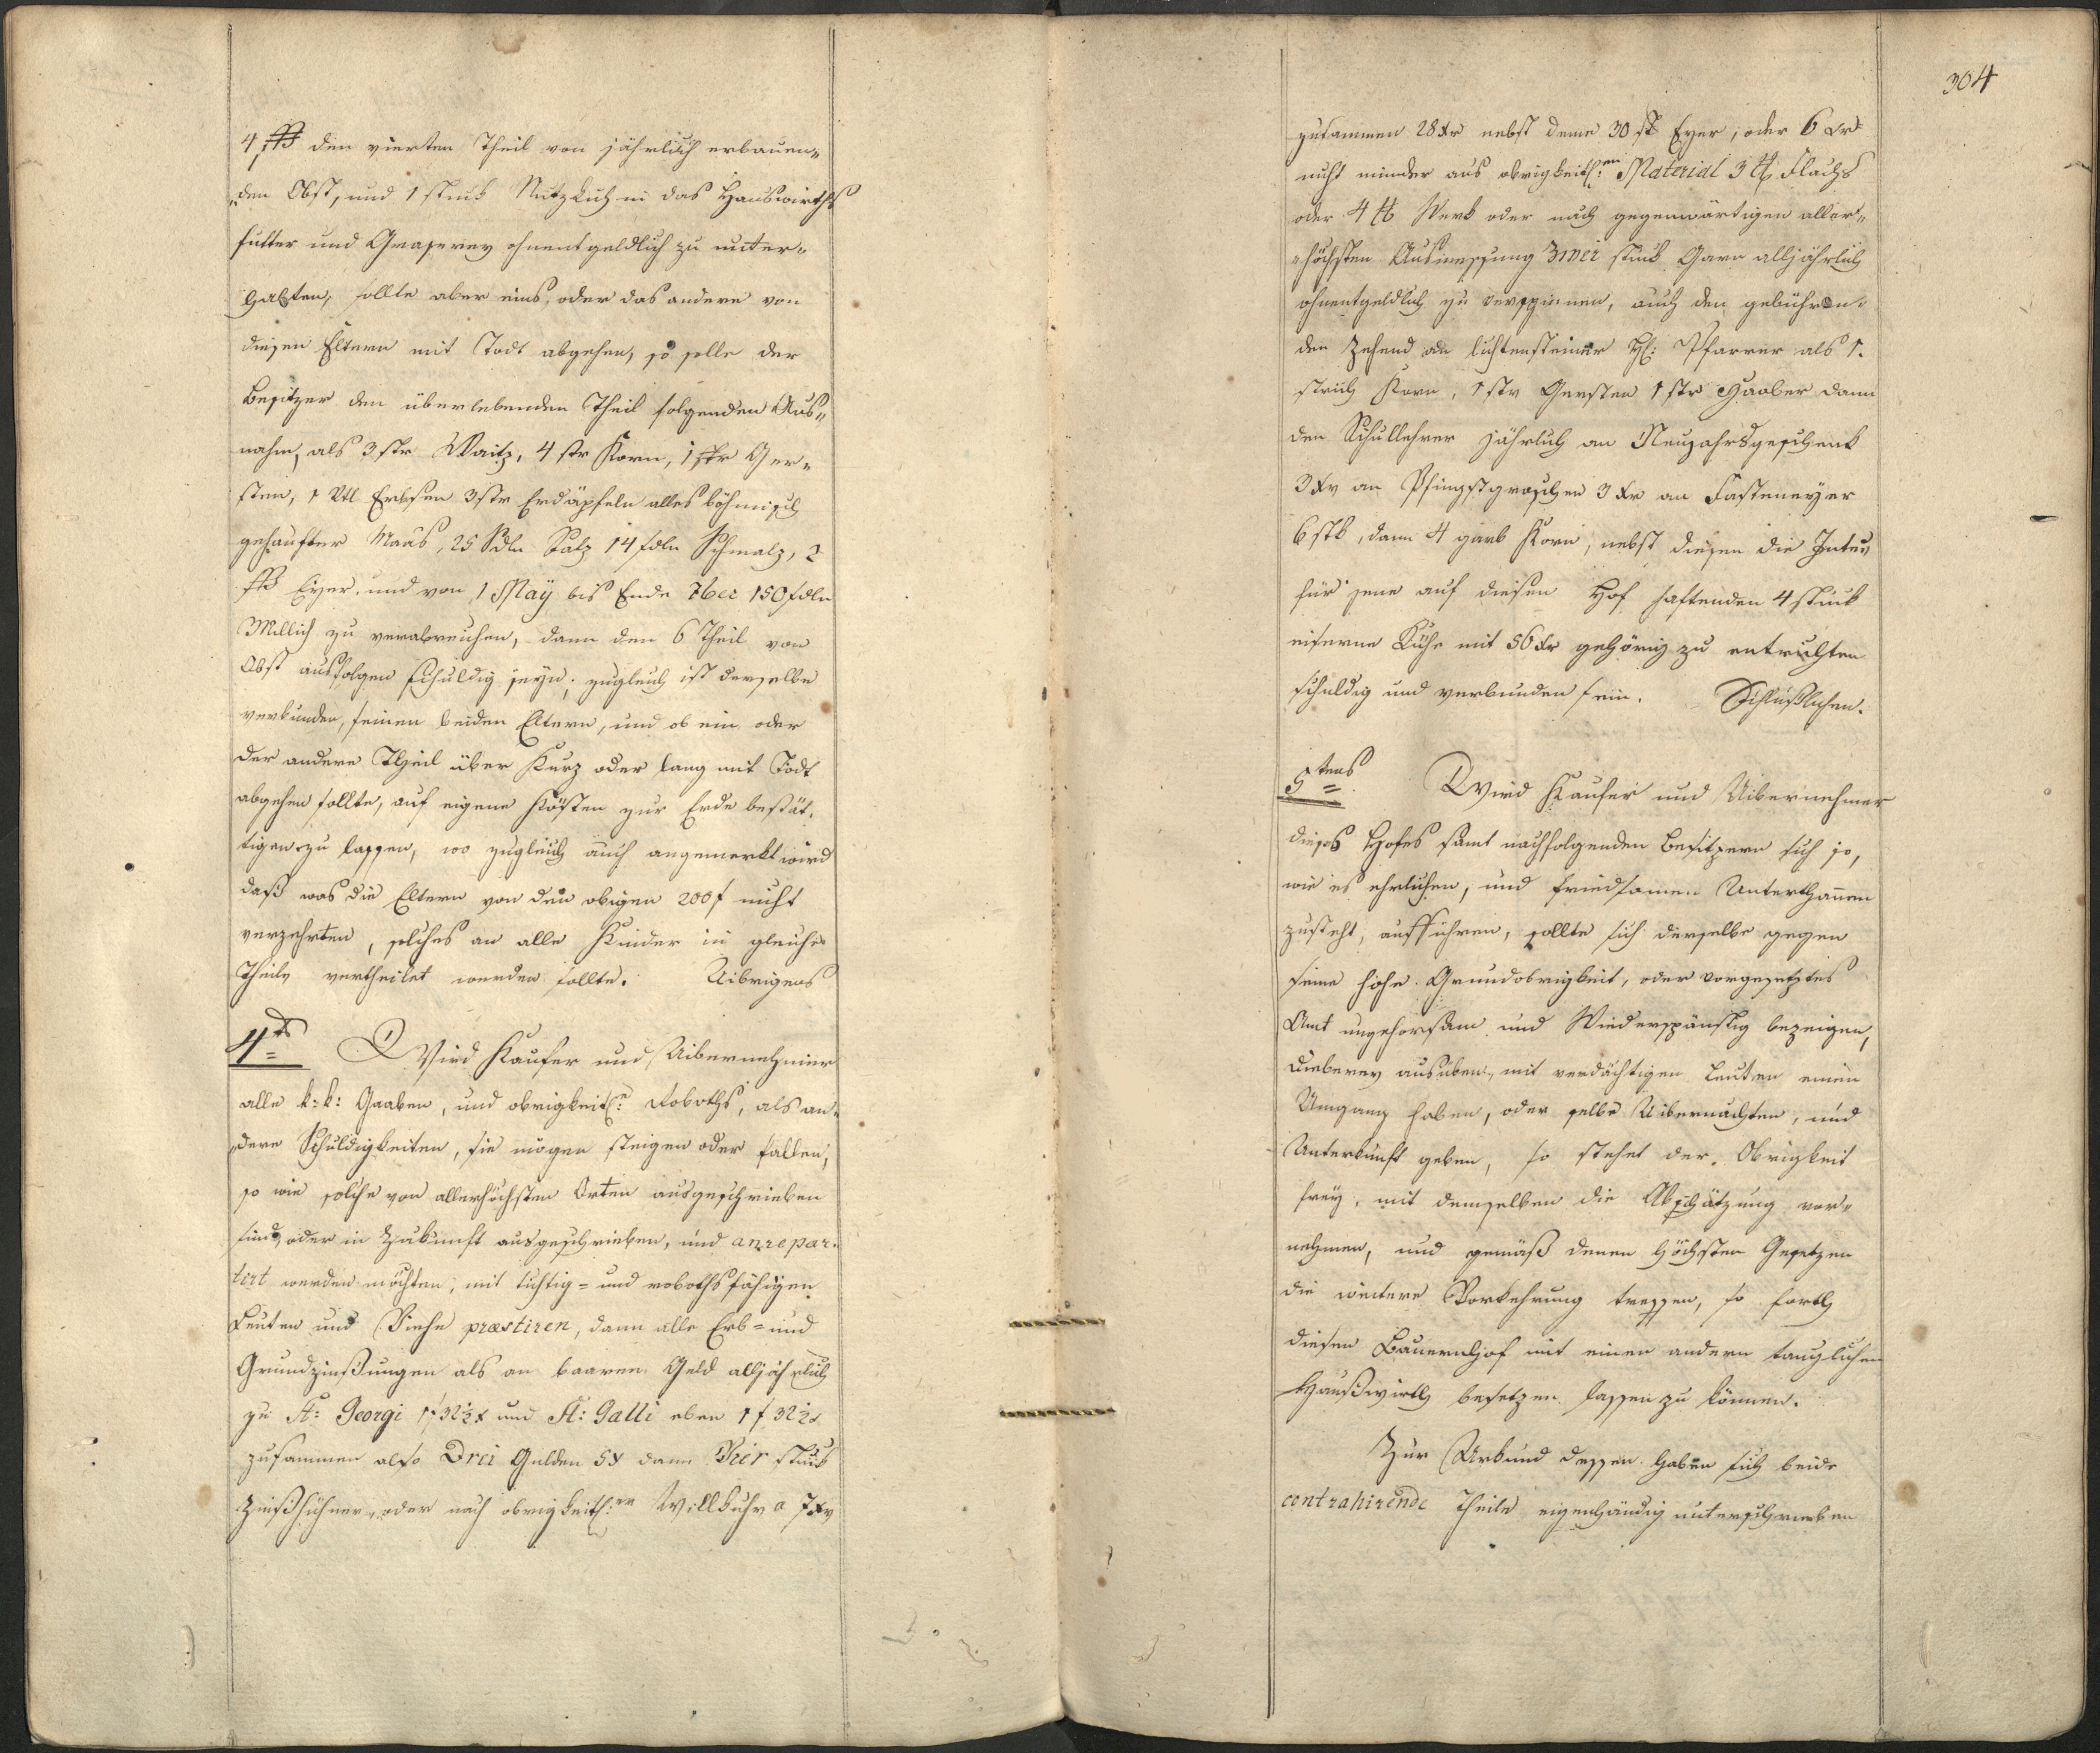 4 ßß den vierten Theil von jährlich erbauen„
„den Obst, und 1 stuck Nutzkuh in das Hauswirths
futter und Graserey ohnentgeldlich zu unter„
halten, sollte aber eins, oder das andere von
diesen Eltern mit Todt abgehen, so solle der
Besitzer den überlebenden Theil folgenden Aus„
nahm, als 3 str Waitz, 4 str Korn, 1 str Ger„
sten, 1 Vtl Erbsen 3 str Erdäpfeln alles böhmisch
gehaufter Maas, 25 Sdln Salz 14 sdln Schmalz, 2
ßß Eyer, und von 1 May bis Ende 7ber 150 sdln
Millich zu verabreichen, dann den 6 Theil von
Obst ausfolgen schuldig seyn; zugleich ist derselbe
verbunden, seinen beiden Eltern, und ob ein oder
der andere Theil über Kurz oder lang mit Todt
abgehen sollte, auf eigene Kösten zur Erde bestät„
tigen zu lassen, wo zugleich auch angemerkt wird
daß was die Eltern von den obigen 200 f nicht
verzehrten, solches an alle Kinder in gleiche
Theile vertheilet werden sollte. Uibrigens
4ts Wird Kaufer und Uibernehmer
alle k: k: Gaaben, und obrigkeitl: Roboths, als an„
„dere Schuldigkeiten, sie mögen steigen oder fallen,
so wie solche von allerhöchsten Orten ausgeschrieben
sind, oder in Zukunft ausgeschrieben, und anrepar„
tirt werden möchten, mit tüchtig= und robothsfähigen
Leuten und Viehe præstiren, dann alle Erb= und
Grundzinßungen als an baaren Geld alljährlich
zu St: Georgi 1 f 32½ x und St: Galli eben 1 f 32½ x
zusammen also Drei Gulden 5 x dann Vier stuck
Zinßhühner, oder nach obrigkeitl:en Willkuhr a 7 xr
304
zusammen 28 xr nebst deme 30 st Eyer, oder 6 xr
nicht minder aus obrigkeitl:en Material 3 ℔ Flachs
oder 4 ℔ Werk oder nach gegenwärtigen aller„
„höchsten Ausmessung zwei stuck Garn alljährlich
ohnentgeldlich zu verspinnen, auch den gebühren„
den Zehend an lichtensteiner H: Pfarrer als 1.
strich Korn, 1 str Gersten 1 str Haaber dann
den Schullehrer jährlich an Neujahrsgeschenk
3 xr an Pfingstgroschen 3 xr an Fasteneyer
6 stk, dann 4 garb Korn, nebst diesen die Intres
für jene auf diesen Hof haftenden 4 stuck
eiserne Kühe mit 56 xr gehörig zu entrichten
schuldig und verbunden sein. Schlüßlichen.
5tens Wird Kaufer und Uibernehmer
dieses Hofes samt nachfolgenden Besitzern sich so,
wie es ehrlichen, und friedsamen Unterthannen
zusteht, aufführen, sollte sich derselbe gegen
seine hohe Grundobrigkeit, oder vorgesetztes
Amt ungehorsam und Wiederspänstig bezeigen,
Dieberey ausüben, mit verdächtigen Leuten einen
Umgang haben, oder selbe Uibernachten, und
Unterkunft geben, so stehet der Obrigkeit
frey, mit demselben die Abschätzung vor„
nehmen, und gemäß denen höchsten Gesetzen
die weitere Vorkehrung treffen, so forth
diesen Bauernhof mit einen andern tauglichen
Haußwirth besetzen lassen zu können.
Zur Urkund dessen haben sich beide
contrahirende Theile eigenhändig unterschrieben